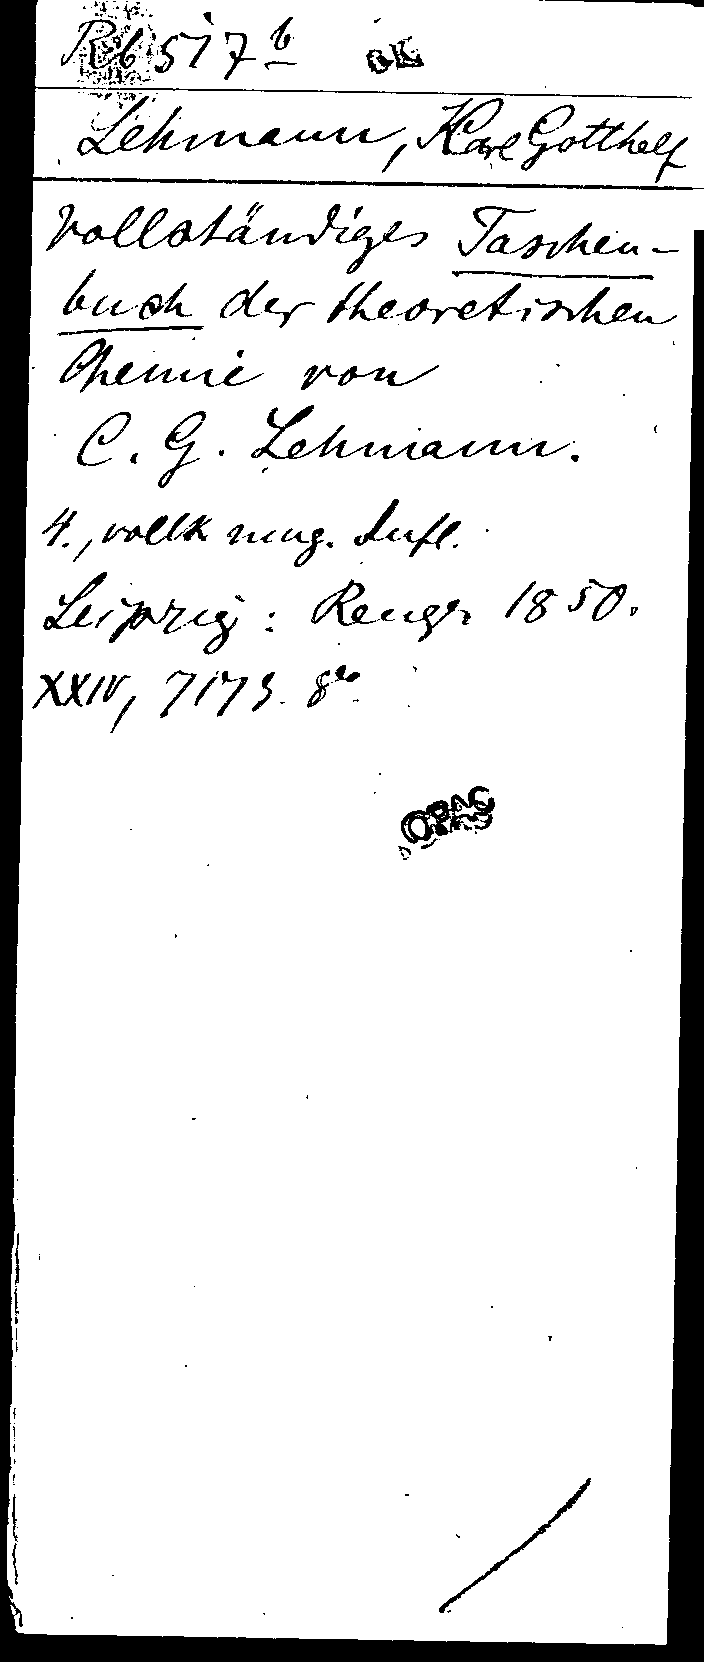 Rb 517 b OK
Lehmann, Karl Gotthelf
Vollständiges Taschen-
buch der theoretischen
Chemie von
C. G. Lehmann.
4., vollk umg. Aufl.
Leipzig: Renger 1850.
XXIV, 717 S. 8°.
OPAC